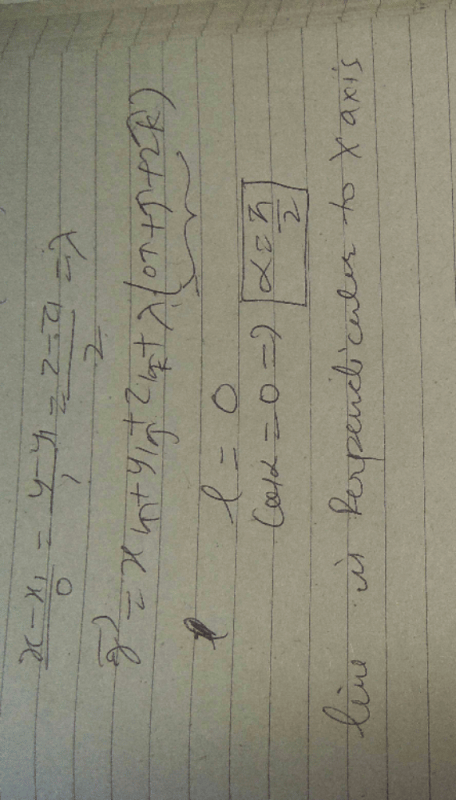 x-x₁/0 = y-y₁/1 = z-z₁/2 = λ
r⃗ = x₁i + y₁j + z₁k + λ(0i + j + 2k)
l = 0
Cosα = 0 ⇒ α = π/2
line is perpendicular to X axis